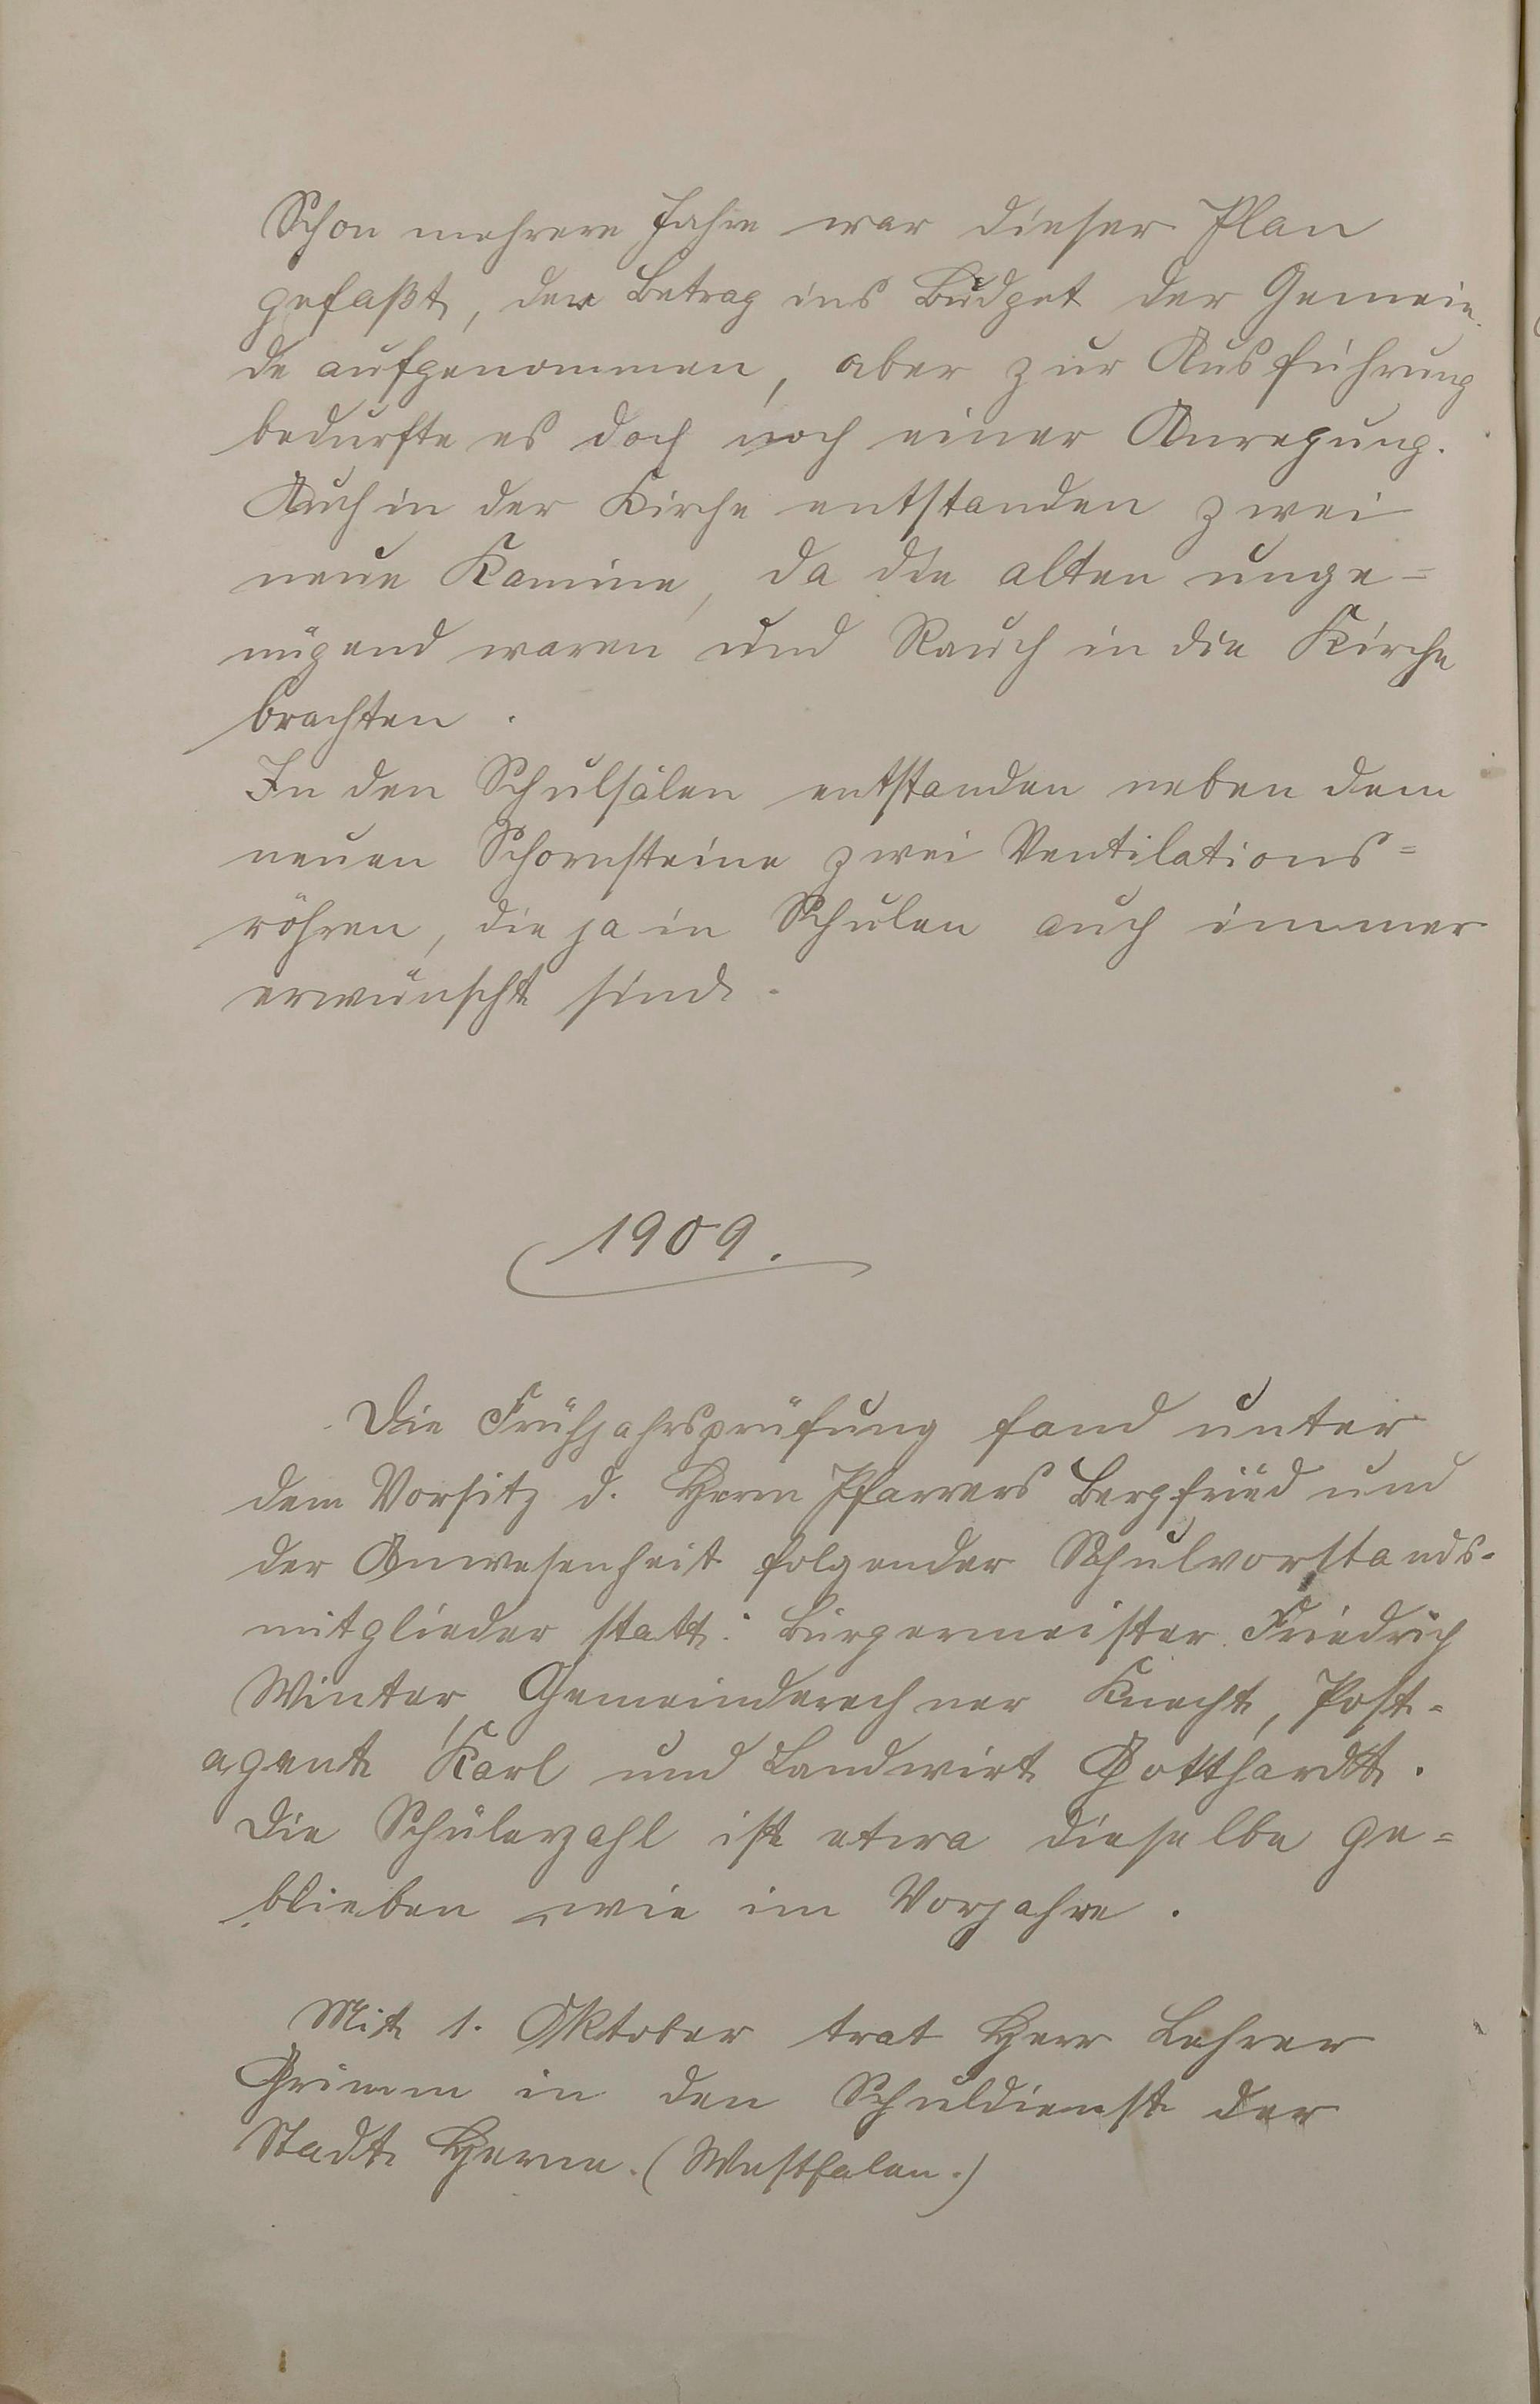 Schon mehrere Jahre war dieser Plan
gefaßt, der Betrag ins Budget der Gemein-
de aufgenommen, aber zur Ausführung
bedurfte es doch noch einer Anregung.
Auch in der Kirche entstanden zwei
neue Kamine, da die alten unge=
nügend waren und Rauch in die Kirche
brachten.
In den Schulsälen entstanden neben dem
neuen Schornsteine zwei Ventilations=
röhren, die ja in Schulen auch immer
erwünscht sind.
1909.
Die Frühjahrsprüfung fand unter
dem Vorsitz d. Herrn Pfarrers Bergfried und
der Anwesenheit folgender Schulvorstands-
mitglieder statt: Bürgermeister Friedrich
Winter, Gemeinderechner Knecht, Post-
agent Karl und Landwirt Gotthardt.
Die Schülerzahl ist etwa dieselbe ge=
blieben wie im Vorjahre.
Mit 1. Oktober trat Herr Lehrer
Grimm in den Schuldienst der
Stadt Herne. (Westfalen.)